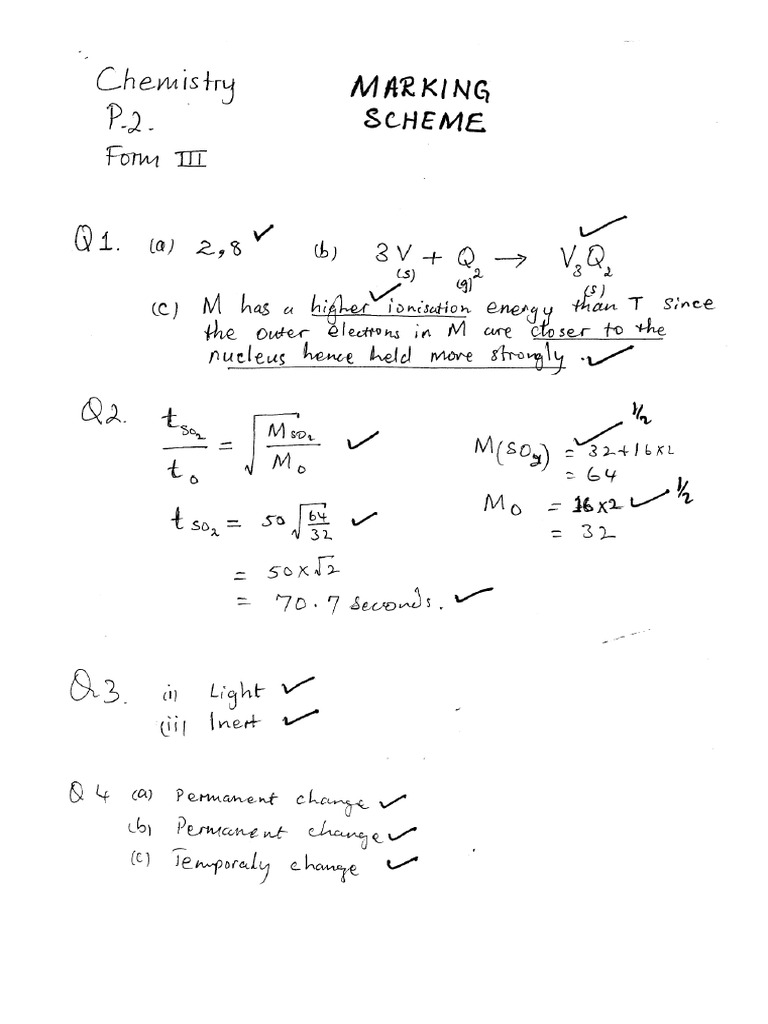 Chemistry MARKING
P.2. SCHEME
Form III
Q1. (a) 2,8 ✓ (b) 3V(s) + Q₂(g) → V₃Q₂(s) ✓
(c) M has a higher ionisation energy than T since ✓
the outer electrons in M are closer to the
nucleus hence held more strongly. ✓
Q2. t_SO₂ / t_O = √(M_SO₂ / M_O) ✓
M(SO₂) = 32+16x2 ✓ ½
= 64
M_O = 16x2 ✓ ½
= 32
t_SO₂ = 50 √(64/32) ✓
= 50x√2
= 70.7 seconds. ✓
Q3. (i) Light ✓
(ii) Inert ✓
Q4 (a) Permanent change ✓
(b) Permanent change ✓
(c) Temporaly change ✓